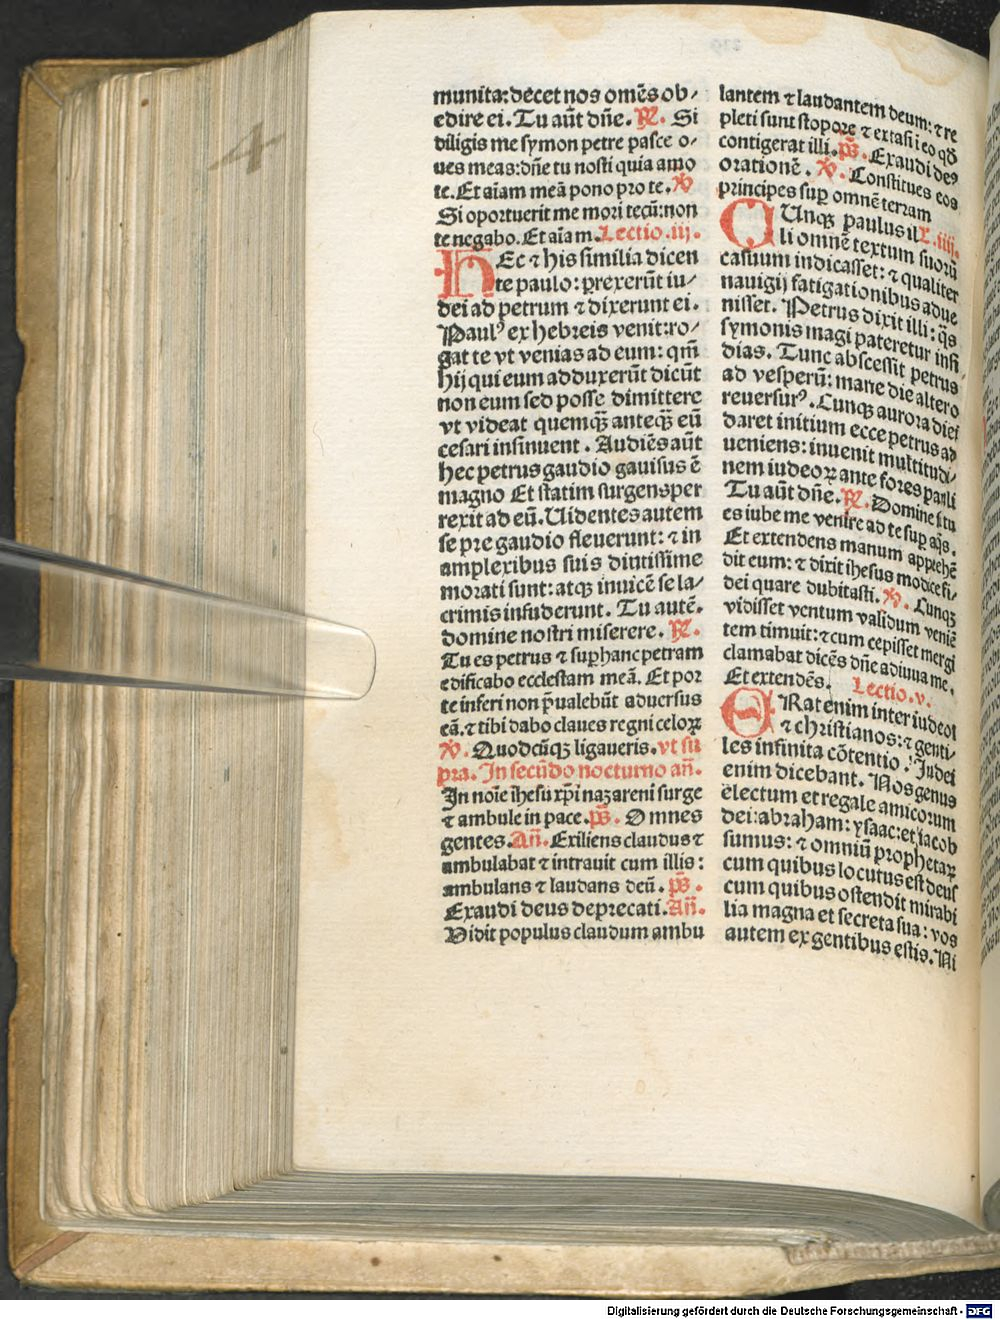 munita: decet nos omēs ob⸗
edire ei. Tu aūt dn̄e. R̷. Si
diligis me symon petre pasce o⸗
ues meas: dn̄e tu nosti quia amo
te. Et aīam meā pono pro te. v̷
Si oportuerit me mori tecū: non
te negabo. Et aīam. Lectio .iij.
HEc ⁊ his similia dicen
te paulo: prexerūt iu⸗
dei ad petrum ⁊ dixerunt ei.
Paulꝰ ex hebreis venit: ro⸗
gat te vt venias ad eum: qm̄
hij qui eum adduxerūt dicūt
non eum sed posse dimittere
vt videat quemqꝫ anteqꝫ eū
cesari insinuent. Audiēs aūt
hec petrus gaudio gauisus ē
magno Et statim surgens per
rexit ad eū. Uidentes autem
se pre gaudio fleuerunt: ⁊ in
amplexibus suis diutissime
morati sunt: atqꝫ inuicē se la⸗
crimis infuderunt. Tu autē.
domine nostri miserere. R̷.
Tu es petrus ⁊ suꝑ hanc petram
edificabo ecclesiam meā. Et por
te inferi non p̄ualebūt aduersus
eā. ⁊ tibi dabo claues regni celoꝝ
v̷. Quodcūqꝫ ligaueris. vt su
pra. In secūdo nocturno an̄.
In noīe ihesu xp̄i nazareni surge
⁊ ambule in pace. ps̄. Omnes
gentes. An̄. Exiliens claudus ⁊
ambulabat ⁊ intrauit cum illis:
ambulans ⁊ laudans deū. ps̄.
Exaudi deus deprecati. An̄.
Vidit populus claudum ambu
lantem ⁊ laudantem deum: ⁊ re
pleti sunt stopore ⁊ extasi ī eo qđ
contigerat illi. ps̄. Exaudi deꝰ
orationē. v̷. Constitues eos
principes suꝑ omnē terram
CUnqꝫ paulus il L. iiij.
li omnē textum suorū
casuum indicasset: ⁊ qualiter
nauigij fatigationibus adue
nisset. Petrus dixit illi: qs̄
symonis magi pateretur insi
dias. Tunc abscessit petrus
ad vesperū: mane die altero
reuersurꝰ. Cunqꝫ aurora diei
daret initium ecce petrus ad
ueniens: inuenit multitudi⸗
nem iudeoꝝ ante fores pauli
Tu aūt dn̄e. R̷. Domine si tu
es iube me venire ad te suꝑ aq̄s.
Et extendens manum apprehē
dit eum: ⁊ dixit ihesus modice fi⸗
dei quare dubitasti. v̷. Cunqꝫ
vidisset ventum validum veniē
tem timuit: ⁊ cum cepisset mergi
clamabat dicēs dn̄e adiuua me.
Et extendēs. Lectio .v.
ERat enim inter iudeos
⁊ christianos: ⁊ genti⸗
les infinita cōtentio. Iudei
enim dicebant. Nos genus
electum et regale amicorum
dei: abraham: ysaac: et iacob
sumus: ⁊ omniū prophetaꝝ
cum quibus locutus est deus
cum quibus ostendit mirabi
lia magna et secreta sua: vos
autem ex gentibus estis. Ni
4
Digitalisierung gefördert durch die Deutsche Forschungsgemeinschaft - DFG